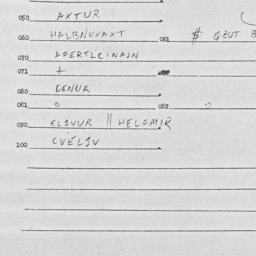 050 AXTUR
060 HALBNUXAXT 061 $ QBUT B
070
071 +
080 DENUR
081 0 082 0
090 ELJVUR || HELGMIR
100 CVELJV